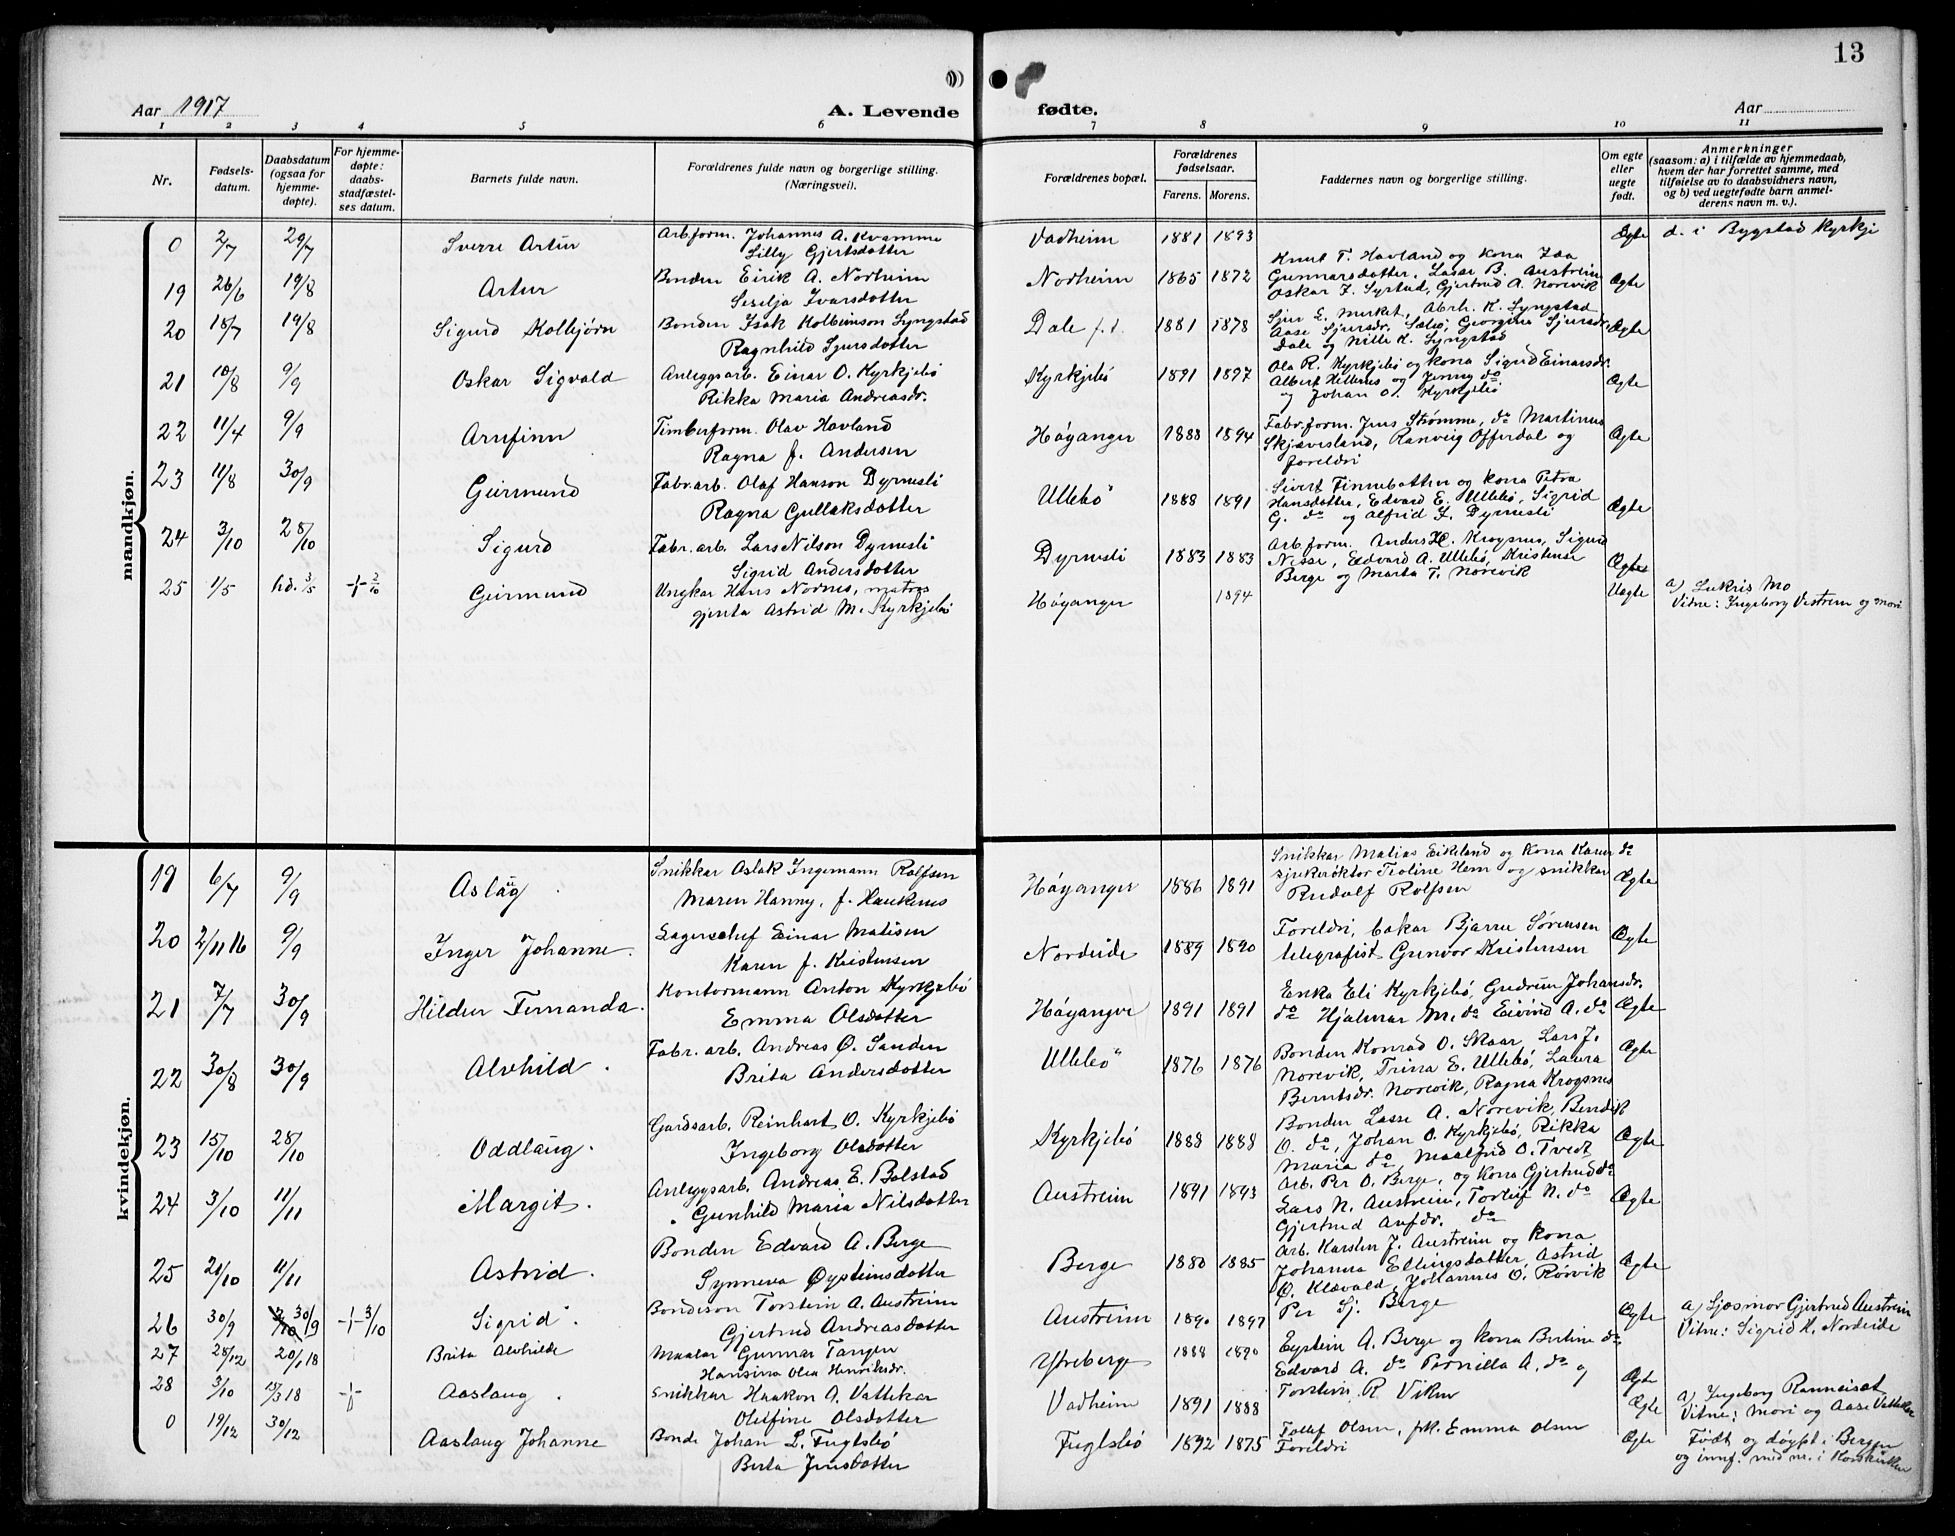 13
Aar 1917
A. Levende
fødte.
Aar
1 2 3 4 5 6 7 8 9 10 11
Nr.
Fødsels-
datum.
Daabsdatum
(ogsaa for
hjemme-
døpte).
For hjemme-
døpte:
daabs-
stadfæstel-
ses datum.
Barnets fulde navn.
Forældrenes fulde navn og borgerlige stilling.
(Næringsvei).
Forældrenes bopæl.
Forældrenes
fødselsaar.
Farens. Morens.
Faddernes navn og borgerlige stilling.
Om egte
eller
uegte
født.
Anmerkninger
(saasom: a) i tilfælde av hjemmedaab,
hvem der har forrettet samme, med
tilføielse av to daabsvidners navn,
og b) ved uegtefødte barn anmel-
derens navn m. v.).
mandkjøn.
0 2/7 29/7 Sverre Artur Arb.form. Johannes A. Kvamme Vadheim 1881 1893 Ægte d. i Bygstad Kyrkje
Lilly Gjertsdotter
Knut T. Havland og kona Ida
19 26/6 19/8 Artur Bonden Eirik A. Norheim Norheim 1865 1872 Gunnarsdotter, Lasar B. Austreim Ægte
Seselja Ivarsdotter Oskar J. Systad, Gjertrud A. Norevik
20 18/7 19/8 Sigurd Kolbjørn Bonden Isak Kolbeinson Lyngstad Dale f.d. 1881 1878 Sjur E. Merket, Abrh. K. Lyngstad Ægte
Ragnhild Sjursdotter Aase Sjursdr. Sæbø, Georgine Sjursdr.
Dale og Nille K. Lyngstad
21 10/8 9/9 Oskar Sigvald Anleggsarb. Einar O. Kyrkjebø Kyrkjebø 1891 1897 Ola R. Kyrkjebø og kona Sigrid Einarsdr. Ægte
Rikka Maria Andreasdr. Albert Hillenes og Jenny do
og Johan O. Kyrkjebø
22 11/4 9/9 Arnfinn Timberform. Olav Hovland Høyanger 1888 1894 Fabr.form. Jens Strømme, do Martinus Ægte
Ragna f. Andersen Skjæveland, Ranveig Offerdal og
foreldri
23 11/8 30/9 Geirmund Fabr.arb. Olaf Hanson Dyrnesli Ullebø 1888 1891 Sivert Finnebotten og kona Petra Ægte
Ragna Gullaksdotter Hansdotter, Edvard E. Ullebø, Sigrid
G. do og Alfrid J. Dyrnesli
24 3/10 28/10 Sigurd Fabr. arb. Lars Nilson Dyrnesli Dyrnesli 1883 1883 Arb.form. Anders H. Krogsnes, Sigurd Ægte
Sigrid Andersdotter Nesse, Edvard A. Ullebø, Kristense
Berge og Marta T. Norevik
25 1/5 hd. 3/5 2/10 Geirmund Ungkar Hans Nornes, matros Høyanger 1894 Uægte a) Lukris Mo
gjenta Astrid M. Kyrkjebø Vitne: Ingeborg Vestrem og Mori
kvindekjøn.
19 6/7 9/9 Aslaug Snikkar Aslak Ingemann Rolfsen Høyanger 1886 1891 Snikkar Matias Eikeland og kona Karen do Ægte
Maren Hanny, f. Haukenes sjukerøktor Tioline Hem og snikkar
Rudolf Rolfsen
20 2/11 16 9/9 Inger Johanne Lagerschef Einar Matisen Nordeide 1889 1890 Foreldri, bakar Bjarne Sørensen Ægte
Karen f. Kristensen telegrafist Gunvor Kristensen
21 7/7 30/9 Hildur Fernanda Kontormann Anton Kyrkjebø Høyanger 1891 1891 Enka Eli Kyrkjebø, Gudrun Johansdr. Ægte
Emma Olsdotter do Hjalmar M. do Eivind A. do
22 30/8 30/9 Alvhild Fabr. arb. Andreas Ø. Sanden Ullebø 1876 1876 Bonden Konrad O. Skaar, Lars J. Ægte
Brita Andersdotter Norevik, Trina E. Ullebø, Laura
Berntsdr. Norevik, Ragna Krogsnes
23 15/10 28/10 Oddlaug Gardsarb. Reinhart O. Kyrkjebø Kyrkjebø 1888 1888 Bonden Lasse A. Norevik, Bendik Ægte
Ingeborg Olsdotter O. do, Johan O. Kyrkjebø, Rikka
Maria do, Maalfrid O. Tvedt
24 3/10 11/11 Margit Anleggsarb. Andreas E. Bolstad Austreim 1891 1893 Arb. Per O. Berge, og kona Gjertrud do Ægte
Gunhild Maria Nilsdotter Lars N. Austreim, Torleif N. do
Gjertrud Anfdr. do
25 20/10 11/11 Astrid Bonden Edvard A. Berge Berge 1880 1885 Arb. Karsten J. Austreim og kona Ægte
Synneva Øysteinsdotter Johanna Ellingsdotter, Astrid
Ø. Klævold, Johannes O. Rørvik
26 30/9 30/9 3/10 Sigrid Bondeson Torstein A. Austreim Austreim 1890 1897 Per Sj. Berge Ægte a) Ljosmor Gjertrud Austreim
Gjertrud Andreasdotter Vitne: Sigrid H. Nordeide
27 28/12 20/1 18 Brita Alvhilde Maalar Gunnar Tangen Ytreberge 1888 1890 Eystein A. Berge og kona Bertine do Ægte
Hansina Olea Henriksdr. Edvard A. do Pernilla A. do og
28 3/10 18 Aaslaug Snikkar Haakon A. Vattekar Vadheim 1891 1888 Torstein R. Viken Ægte a) Ingeborg Ranneiset
Olefine Olsdotter Vitne: Mori og Aase Vattekar
0 19/12 30/12 Aaslaug Johanne Bonde Johan L. Fuglsbø Fuglsbø 1892 1875 Tollef Olsen, frk. Emma Olsen Ægte Født og døypt i Bergen
Berta Jensdotter Foreldri og innf. med nr. i Korskirken